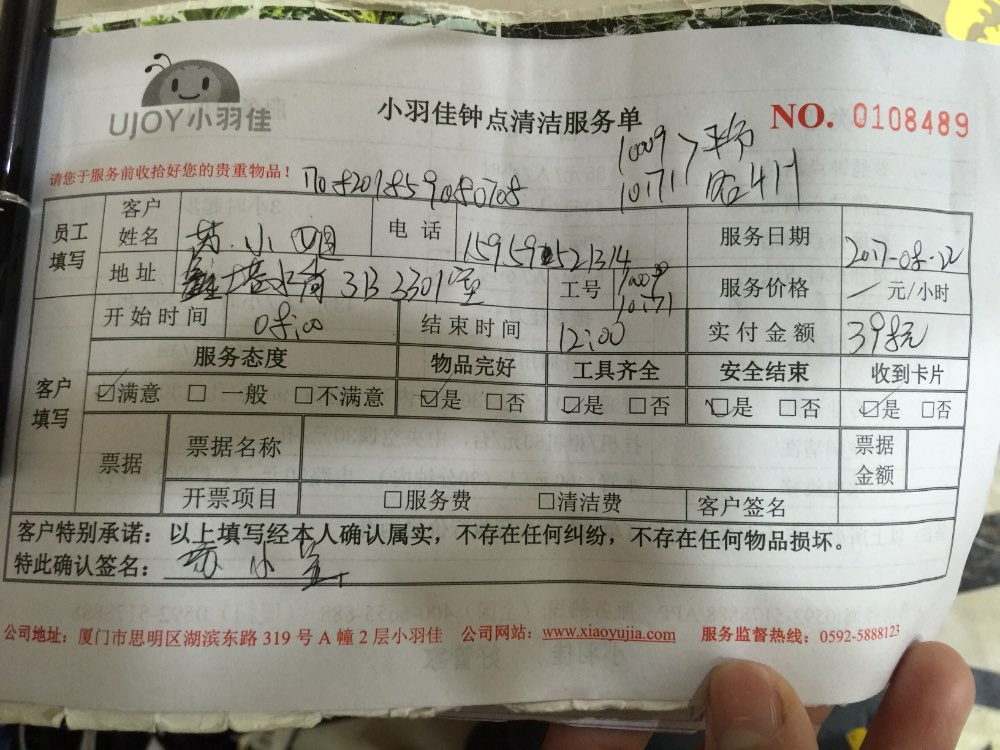 UJOY小羽佳
小羽佳钟点清洁服务单
NO. 0108489
请您于服务前收拾好您的贵重物品！
10009
10171
员工填写 客户姓名 苏小 电话 服务日期 2017-08-22
地址 313 3301室 工号 10009 10171 服务价格 元/小时
开始时间 08:00 结束时间 12:00 实付金额 398元
客户填写 服务态度 物品完好 工具齐全 安全结束 收到卡片
☑满意 □一般 □不满意 ☑是 □否 ☑是 □否 ☑是 □否 ☑是 □否
票据 票据名称 票据金额
开票项目 □服务费 □清洁费 客户签名
客户特别承诺：以上填写经本人确认属实，不存在任何纠纷，不存在任何物品损坏。
特此确认签名：苏小
公司地址：厦门市思明区湖滨东路 319 号 A 幢 2 层小羽佳 公司网站：www.xiaoyujia.com 服务监督热线：0592-5888123